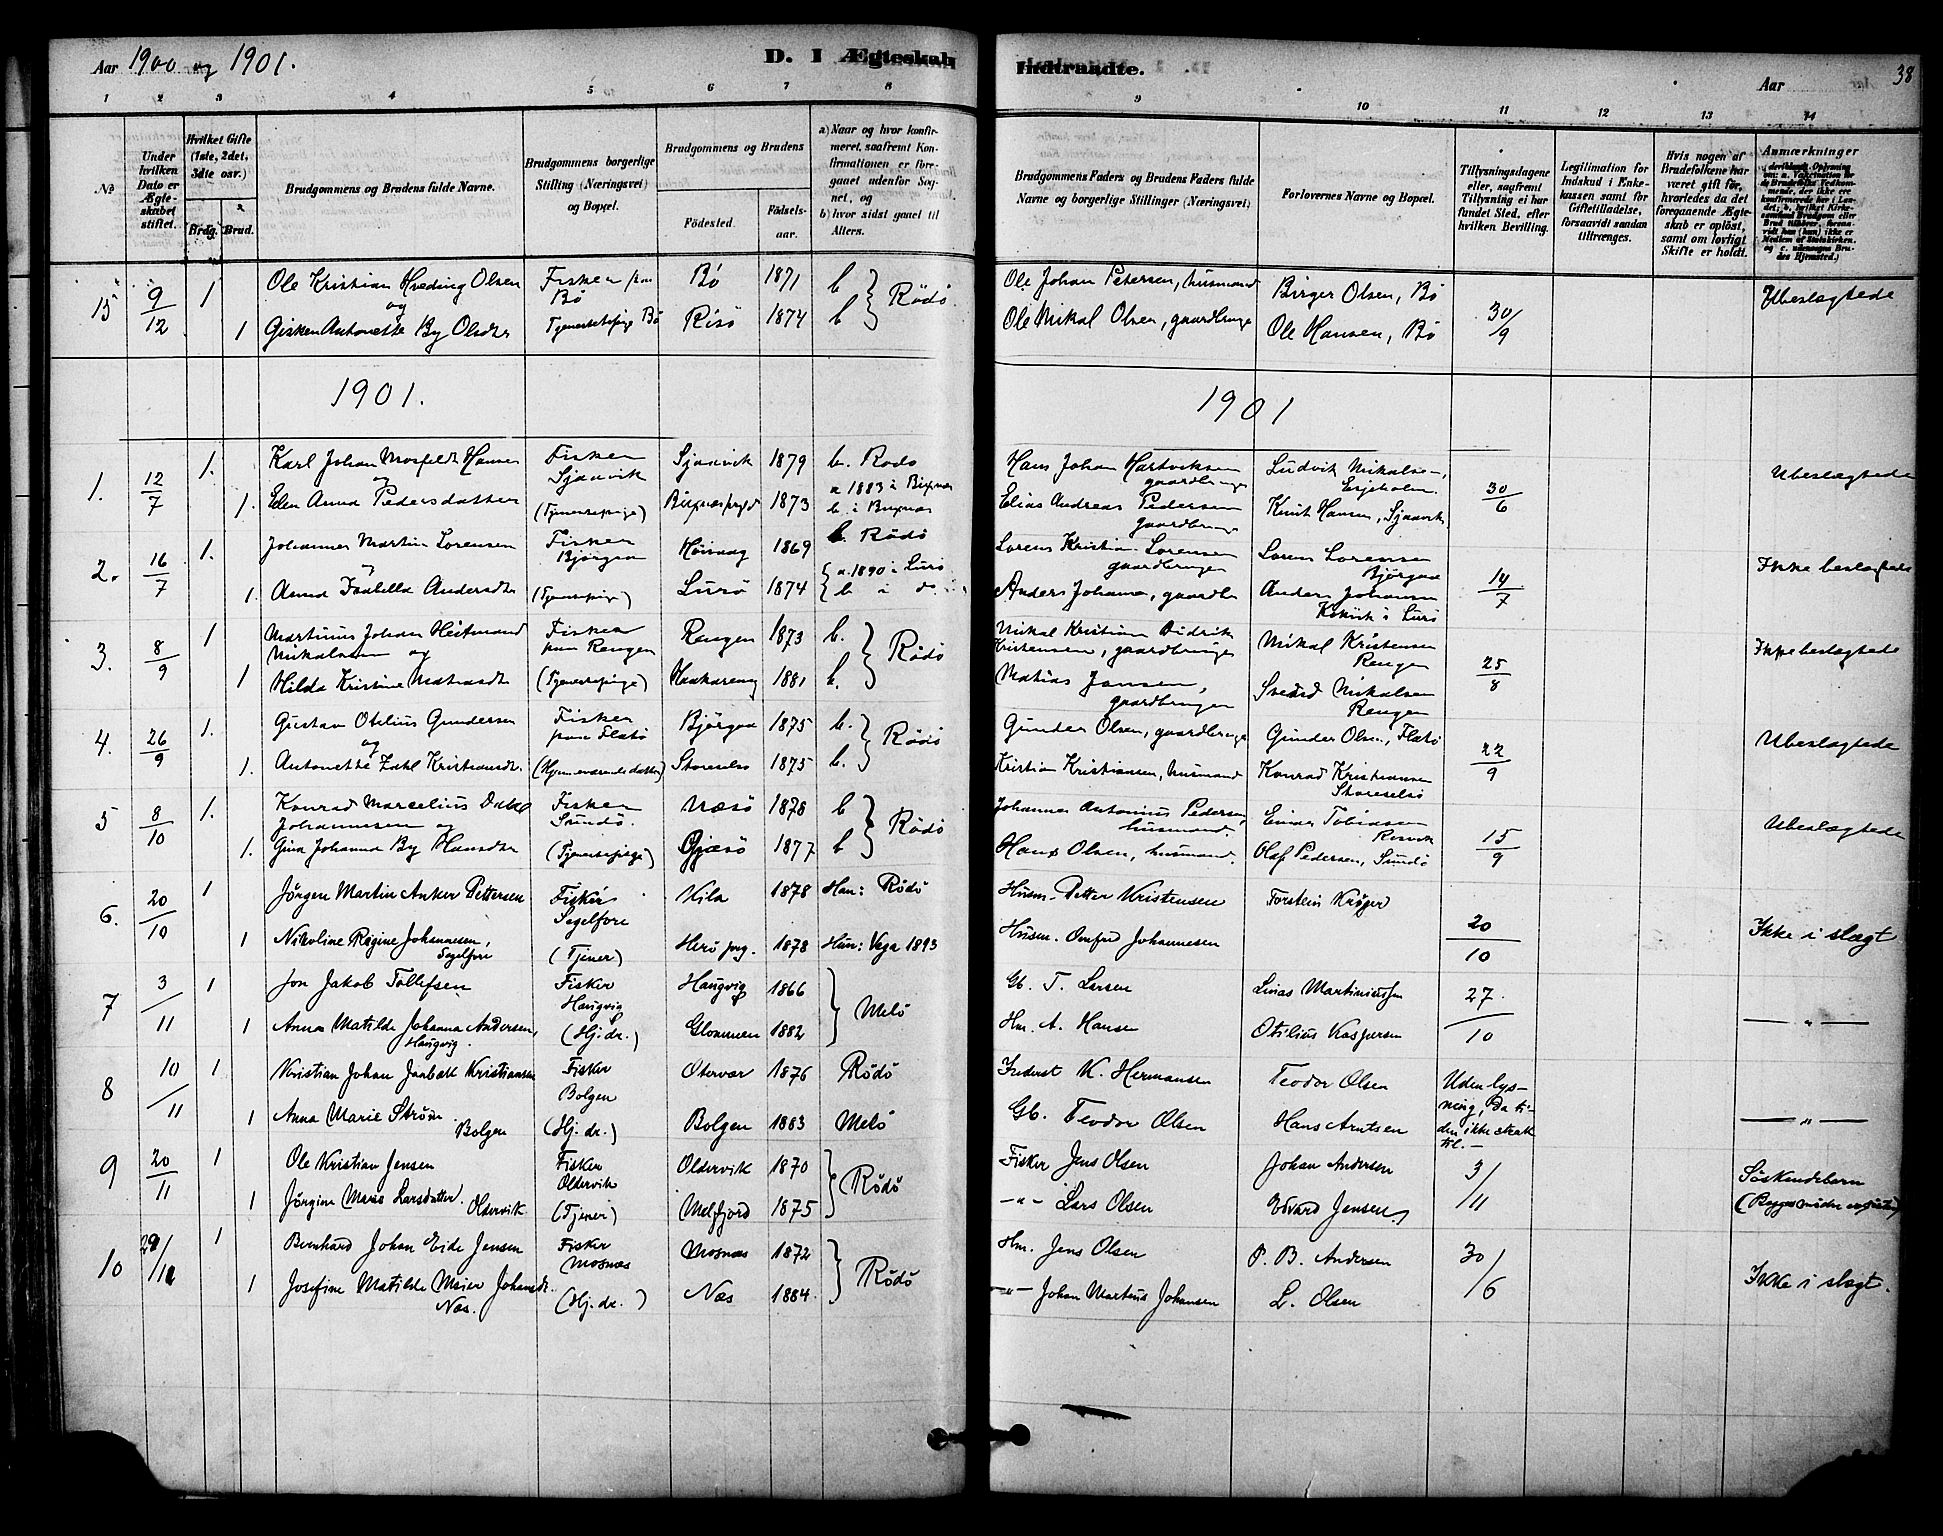 Aar 1900 og 1901.
D. I Ægteskab Indtraadte.
Aar
38
1 2 3 4 5 6 7 8 9 10 11 12 13 14
No
Under hvilken Dato er Ægteskabet stiftet.
Hvilket Gifte (1ste, 2det, 3die osv.)
Brdg. Brud.
Brudgommens og Brudens fulde Navne.
Brudgommens borgerlige Stilling (Næringsvei) og Bopæl.
Brudgommens og Brudens
Fødested. Fødselsaar.
a) Naar og hvor konfirmeret, saafremt Konfirmationen er foregaaet udenfor Sognet, og
b) hvor sidst gaaet til Alters.
Brudgommens Faders og Brudens Faders fulde Navne og borgerlige Stillinger (Næringsvei)
Forlovernes Navne og Bopæl.
Tillysningsdagene eller, saafremt Tillysning ei har fundet Sted, efter hvilken Bevilling.
Legitimation for Indskud i Enkekassen samt for Giftetilladelse, forsaavidt saadan tiltrænges.
Hvis nogen af Brudefolkene har været gift før, hvorledes da det foregaaende Ægteskab er opløst, samt om lovligt Skifte er holdt.
Anmærkninger
15 9/12 1 Ole Kristian Hveding Olsen Bø 1871 b Ole Johan Petersen, husmand Birger Olsen, Bø Ubeslægtede
og Bø Rödö 30/9
1 Gisken Antonette By Olsdtr Bø Risö 1874 b Ole Mikal Olsen, Ole Hansen, Bø
1901. 1901
1. 12/7 1. Karl Johan Hansen Fisker Sjaavik 1879 b. Rödö Hans Johan Hartviksen Ludvik Mikalsen, Ubeslægtede
og Sjaavik a 1883 i gaardbruger 30/6
1. Anna Pedersdatter 1873 b i Elias Andreas Pedersen Knut Hansen, Sjaavik
gaardbruger
2. 16/7 1. Johannes Martin Lorensen Fisker 1869 b. Rödö Lorens Kristian Lorensen Lorens Lorensen Ikke beslægtede
og gaardbruger 14/7
1. Anna Isabella Andersdtr Lurö 1874 a. 1890 i Lurö b i do Anders Johansen Anders Johansen
i Lurö
3. 8/9 1 Martinus Johan Hestmand Fisker Rengen 1873 b. Mikal Kristian Didrik Mikal Kristensen Ikke beslægtede
Mikalsen og Rengen Rödö Kristensen, gaardbruger Rengen 25/8
1 Hilda Kristine 1881 b. Matias Jansen, Mikalsen
gaardbruger Rengen
4. 26/9 1. Gustav Otelius Gundersen Fisker 1875 b. Gunder Olsen, gaardbruger Gunder Olsen, Flatö Ubeslægtede
og Flatö Rödö 22/9
1. Antonette Zahl Storselsö 1875 b. Kristian Kristiansen, husmand Konrad Kristiansen
Storselsö
5 8/10 1. Konrad Marcelius Dahl Fisker Næsö 1878 b Johannes Antonius Pedersen, Tobiassen Ubeslægtede
Johannesen og Sundö. Rödö husmand 15/9
1. Gina Johanna By Hansdtr Gjæsö 1877 b Hans Olsen, husmand. Olaf Pedersen, Sundö
6. 20/10 1 Jørgen Martin Anker Pettersen Fisker Kila 1878 Han: Rödö Husm. Petter Kristensen Torstein Krøger 20/10 Ikke i slægt
Segelfore
1 Nikoline Regine Johannesen, (Tjener) Herö prg. 1878 Hun: Vega 1893 Husm. Johannesen
Segelfore
7 3/11 1 Jon Jakob Tollefsen Fisker Haugvig 1866 Melö Gb. T. Larsen 27/10 — " —
Haugvig
1 Anna Matilde Johanna Andersen, (Hj. dr.) Glommen 1882 Hm. A. Hansen Otilius Kaspersen
Haugvig.
8 10/11 1 Kristian Johan Kristiansen Fisker Otervær 1876 Rödö Inderst K. Hermansen Teodor Olsen Uden lys-
Bolgen ning, da ti-
1 Anna Marie Strøm (Hj. dr.) Bolgen 1883 Melö Gb. Teodor Olsen Hans Arntsen den ikke strak — " —
Bolgen til. -
9 20/11 1 Ole Kristian Jensen Fisker Oldervik 1870 Rödö Fisker Jens Olsen Johan Andersen 3/11 Söskendebørn
Oldervik
1 Jørgine Marie Larsdatter (Tjener) Melfjord 1875 — " — Lars Olsen Edvard Jensen
Oldervik
10 1 Bernhard Johan Eide Jensen Fisker Mosnæs 1872 Rödö Hm. Jens Olsen P. B. Andersen 30/6 Ikke i slægt.
Mosnæs
1 Josefine Matilde Meier Johansdt. (Hj. dr.) Næs 1884. — " — Johan Martius Johansen L. Olsen
Næs.